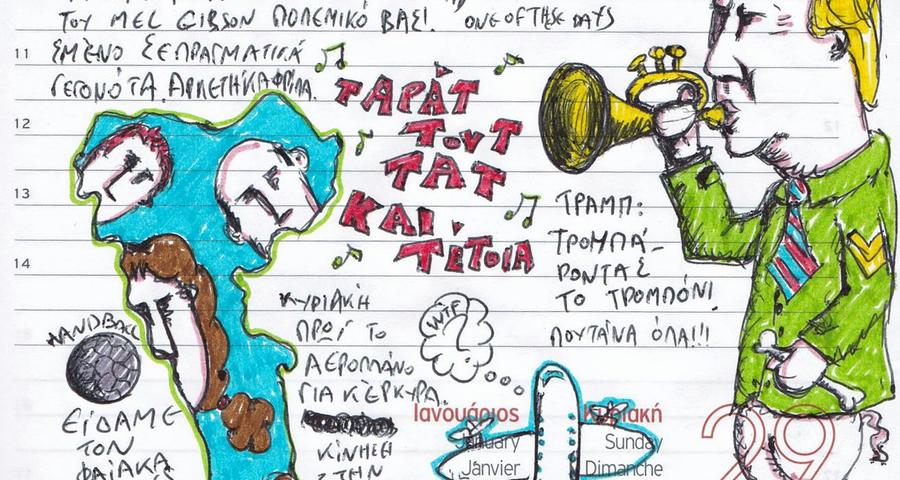 ΤΟΥ MEL GIBSON ΠΟΛΕΜΙΚΌ ΒΑΣ! ONE OF THESE DAYS
11
ΣΜΈΝΟ ΣΕ ΠΡΑΓΜΑΤΙΚΆ
ΓΕΓΟΝΌΤΑ.
12
ΤΑΡΆΤ
ΤΟΥΤ
ΤΑΤ
ΚΑΙ
ΤΈΤΟΙΑ
13
14
ΤΡΑΜΠ:
ΤΡΟΜΠΆ-
ΡΟΝΤΑΣ
ΤΟ ΤΡΟΜΠΌΝΙ
ΠΟΥΤΆΝΑ ΌΛΑ!!!
WTF?
ΚΥΡΙΑΚΉ
ΠΡΩΊ ΤΟ
ΑΕΡΟΠΛΆΝΟ
ΓΙΑ ΚΈΡΚΥΡΑ.
ΚΊΝΗΣΗ
ΣΤΗΝ
HANDBALL
ΕΊΔΑΜΕ
ΤΟΝ
ΦΑΊΑΚΑ
Ιανουάριος
January
Janvier
Κυριακή
Sunday
Dimanche
29